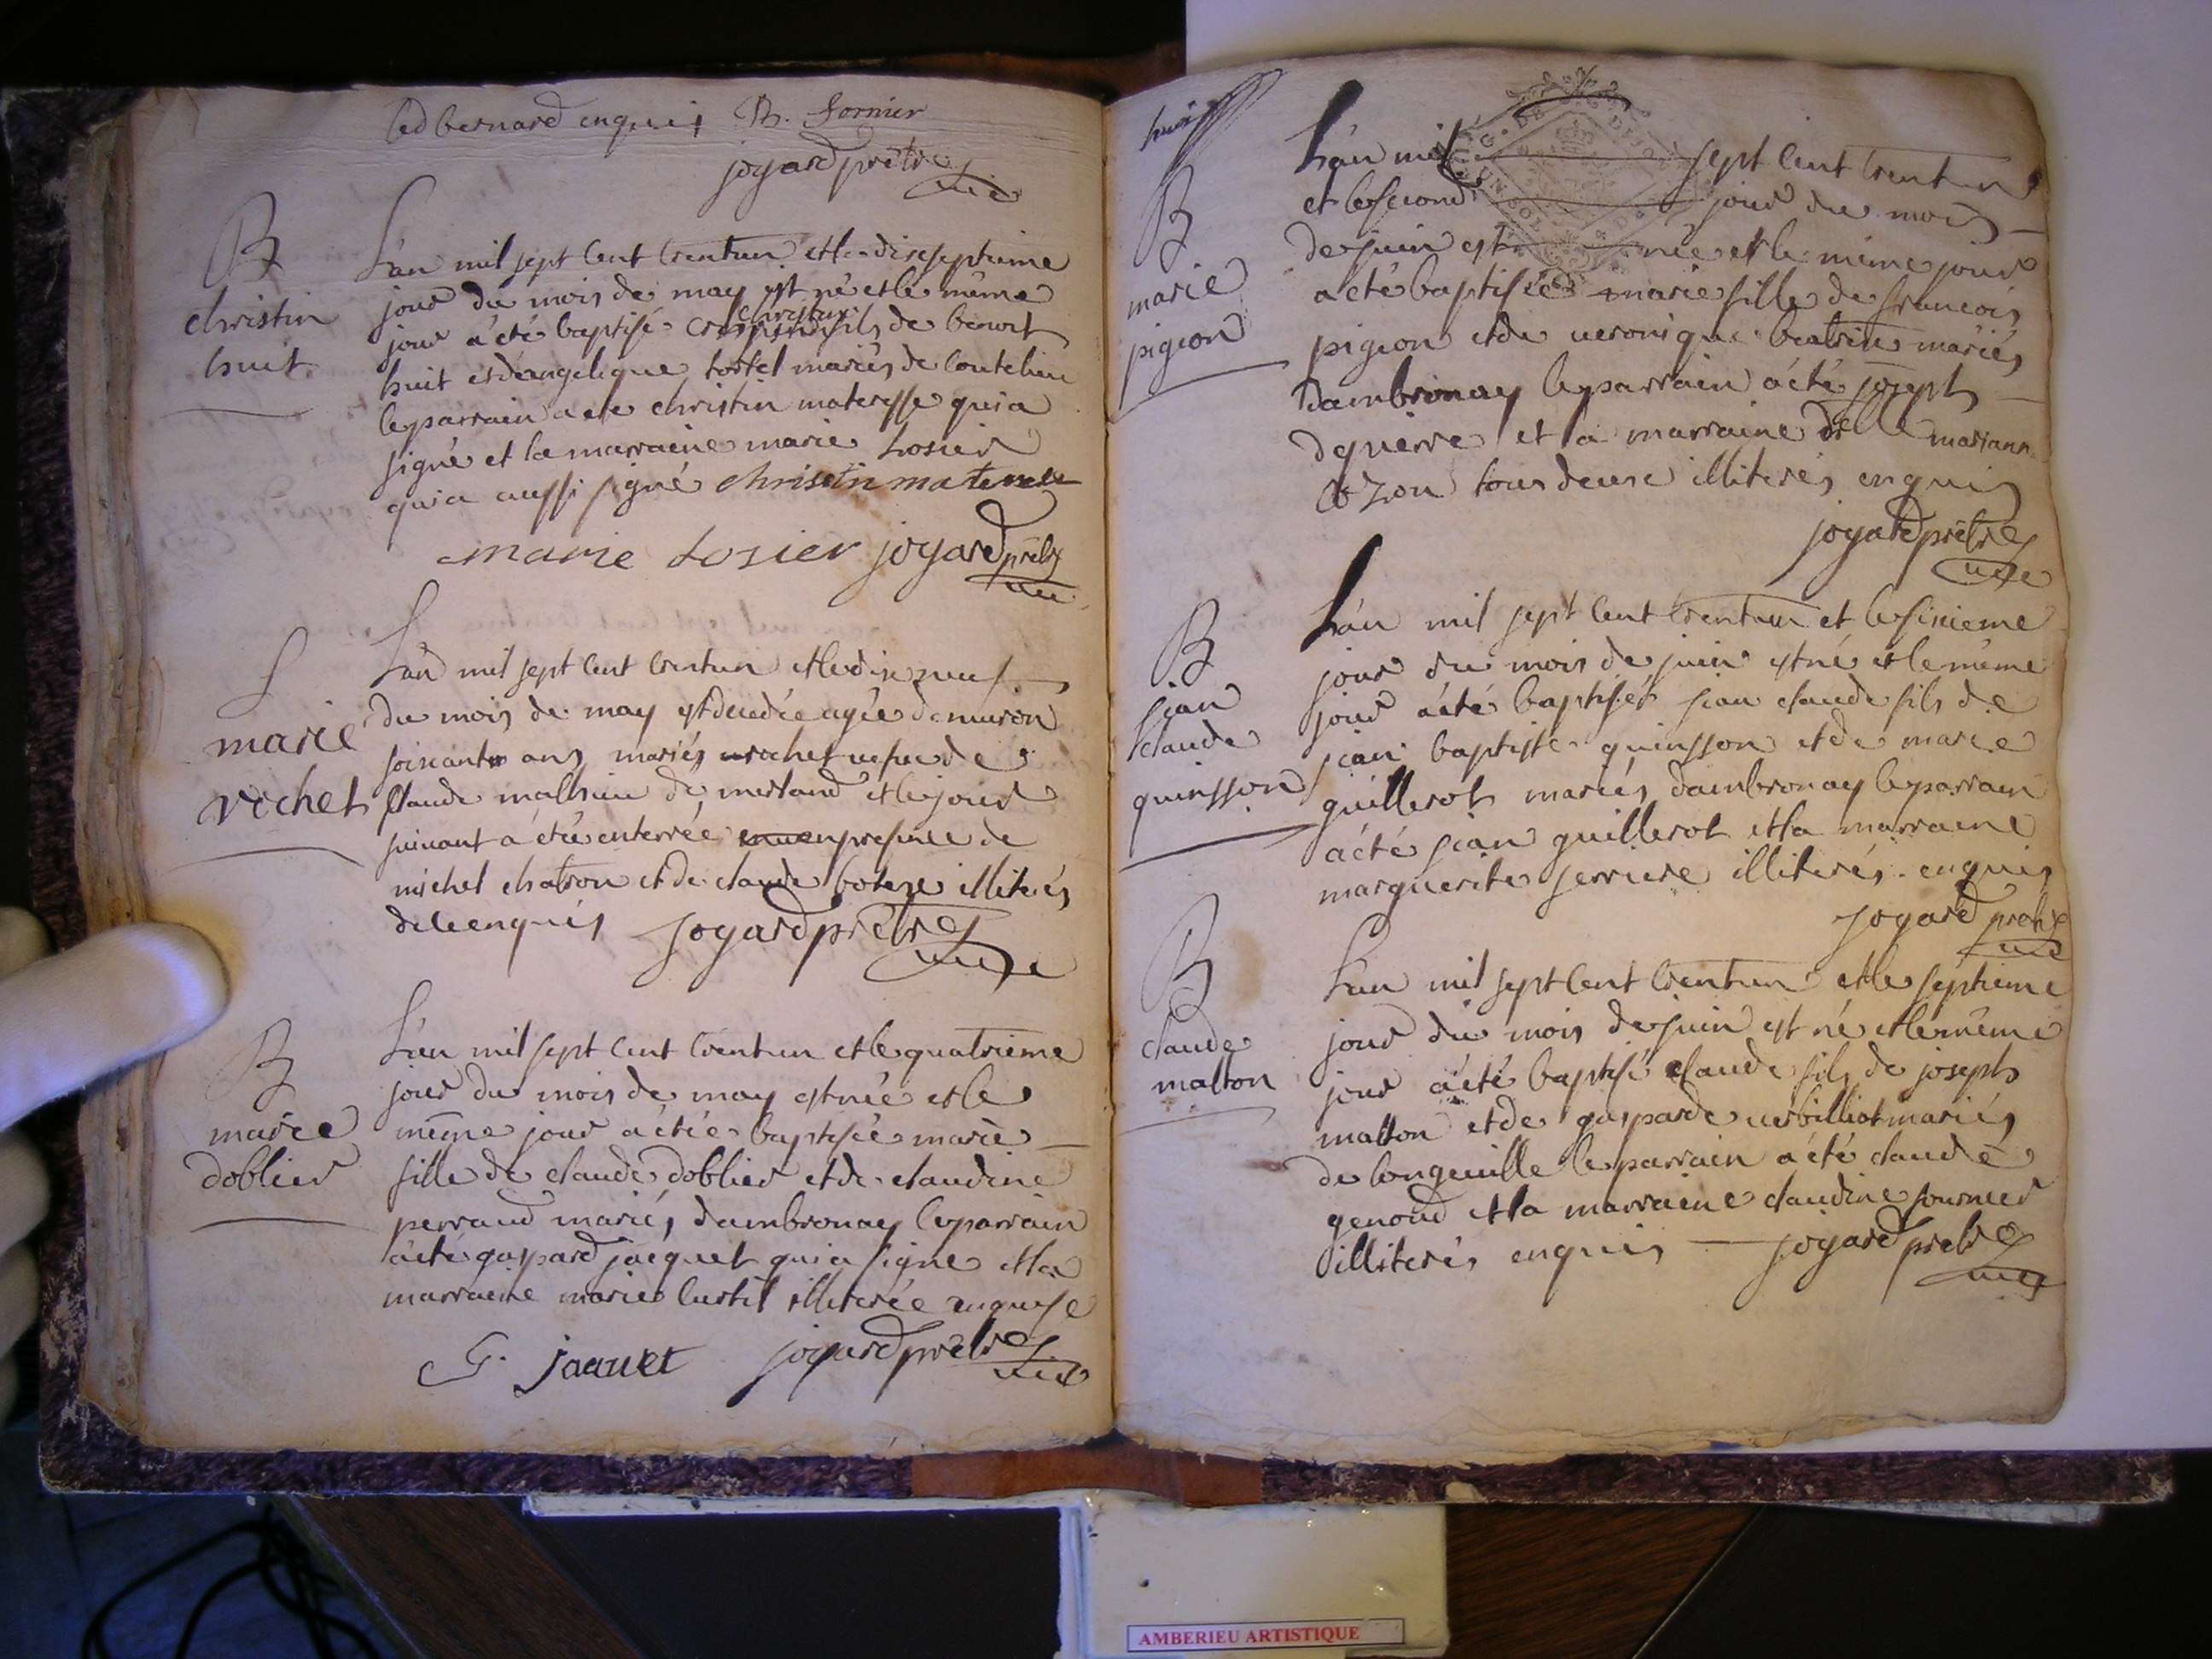 led bernard enquis B. fornier
joyard prêtre
B
christin
huit
L'an mil sept cent trentun et le diseptieme
jour du mois de may est né et le même
christin
jour a été baptisé fils de benoit
huit et dangelique tostel mariés de
le parrain a ete christin materesse qui a
signé et la marraine marie Losier
qui a aussi signé christin
marie Losier joyard prêtre
S
marie
rochet
L'an mil sept cent trentun et le dix neuf
du mois de may est decedée agée denviron
soixante ans marie rochet vefve de
claude mathieu de merland et le jour
suivant a été enterrée en presence de
michel chatron et de claude illiterés
de ce enquis joyard prêtre
B
marie
doblier
L'an mil sept cent trentun et le quatrieme
jour du mois de may est née et le
même jour a été baptisée marie
fille de claude doblier et de claudine
perraud mariés dambronay le parrain
a été gaspard jacquet qui a signe et la
marraine marie illiterée enquise
G. jaquet joyard prêtre
huit
B
marie
pigeon
L'an mil sept cent trentun
et le second jour du mois
de juin est née et le même jour
a eté baptisée marie fille de francois
pigeon et de veronique mariés
dambronay le parrain a été joseph
dquierre et la marraine delle mariann
tous deux illiterés enquis
joyard prêtre
B
jean
claude
quinsson
L'an mil sept cent trentun et le sixieme
jour du mois de juin est né et le même
jour a été baptisé jean claude fils de
jean baptiste quinsson et de marie
guillerot mariés dambronay le parrain
a été jean guillerot et la marraine
marguerite ferriere illiterés enquis
joyard prêtre
B
claude
malton
L'an mil sept cent trentun et le septieme
jour du mois de juin est né et le même
jour a été baptisé claude fils de joseph
malton et de gasparde verbilliot mariés
de longeville le parrain a été claude
genoud et la marraine claudine fournier
illiterés enquis joyard prêtre
AMBERIEU ARTISTIQUE